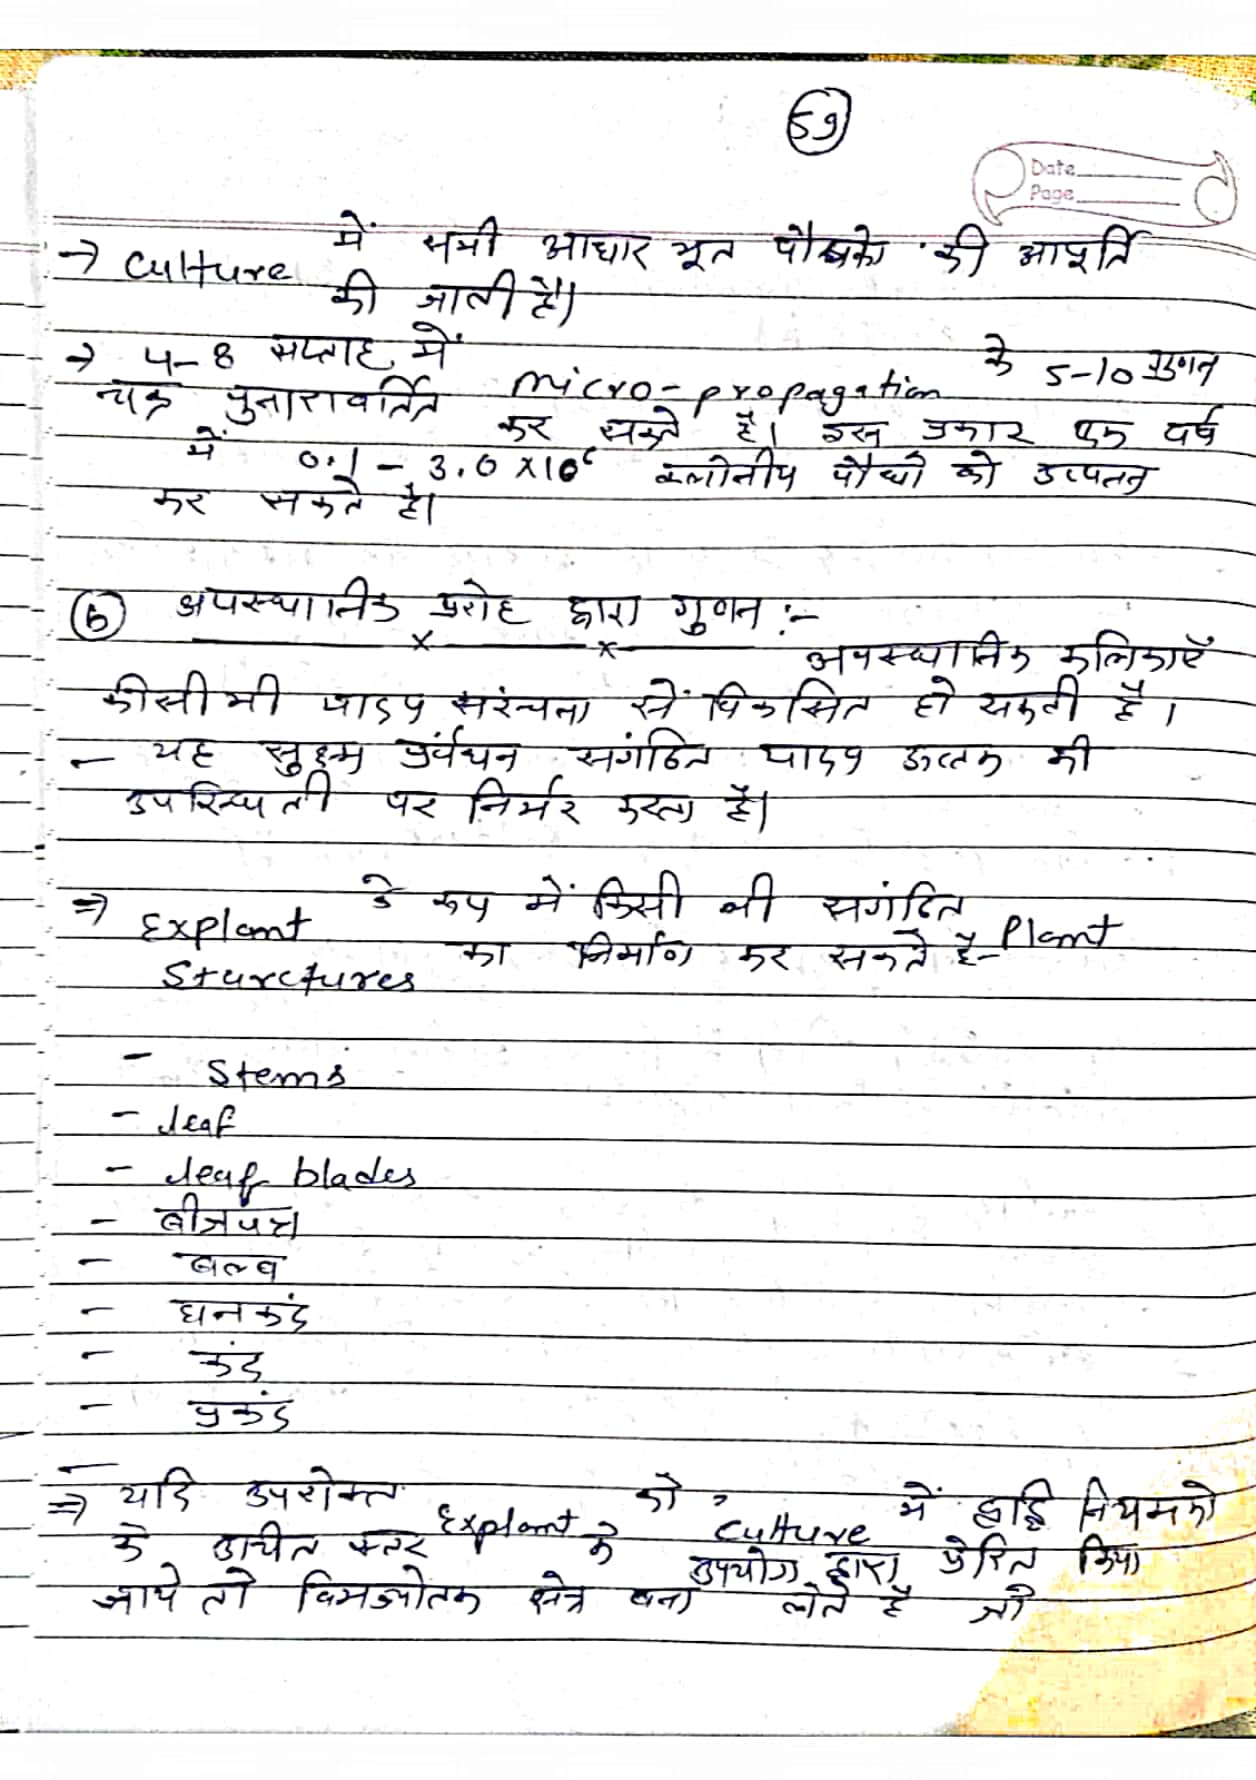 59
Date
Page
→ Culture में सभी आधार भूत पौषको की आपूर्ति
की जाती है।
→ 4-8 सप्ताह में micro-propagation के 5-10 गुणन
चक्र पुनारावर्तित कर सकते है। इस प्रकार एक वर्ष
में 0.1 - 3.0 x10⁶ क्लोनीय पौधो को उत्पतन
कर सकते है।
(b) अपस्थानिक प्ररोह द्वारा गुणन :-
अपस्थानिक कलिकाएँ
कीसी भी पादप सरंचना से विकसित हो सकती है।
- यह सुक्ष्म प्रंर्वधन संगठित पादप ऊत्तक की
उपस्थिती पर निर्भर करता है।
⇒ Explant के रूप में किसी भी सगंठित Plant
Sturctures का निर्माण कर सकते है-
- Stems
- leaf
- leaf blades
- बीजपत्र
- बल्ब
- घनकंद
- कंद
- प्रकंद
⇒ यदि उपरोक्त Explant को, Culture में वृद्धि नियमको
के उचीत स्तर के उपयोग द्वारा प्रेरित किया
जाये तो विभज्योतक क्षेत्र बना लेते है जो